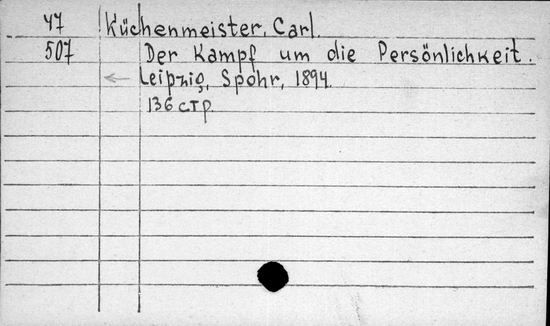 47 Küchenmeister, Carl.
507 Der Kampf um die Persönlichkeit.
Leipzig, Spohr, 1894.
136 стр.